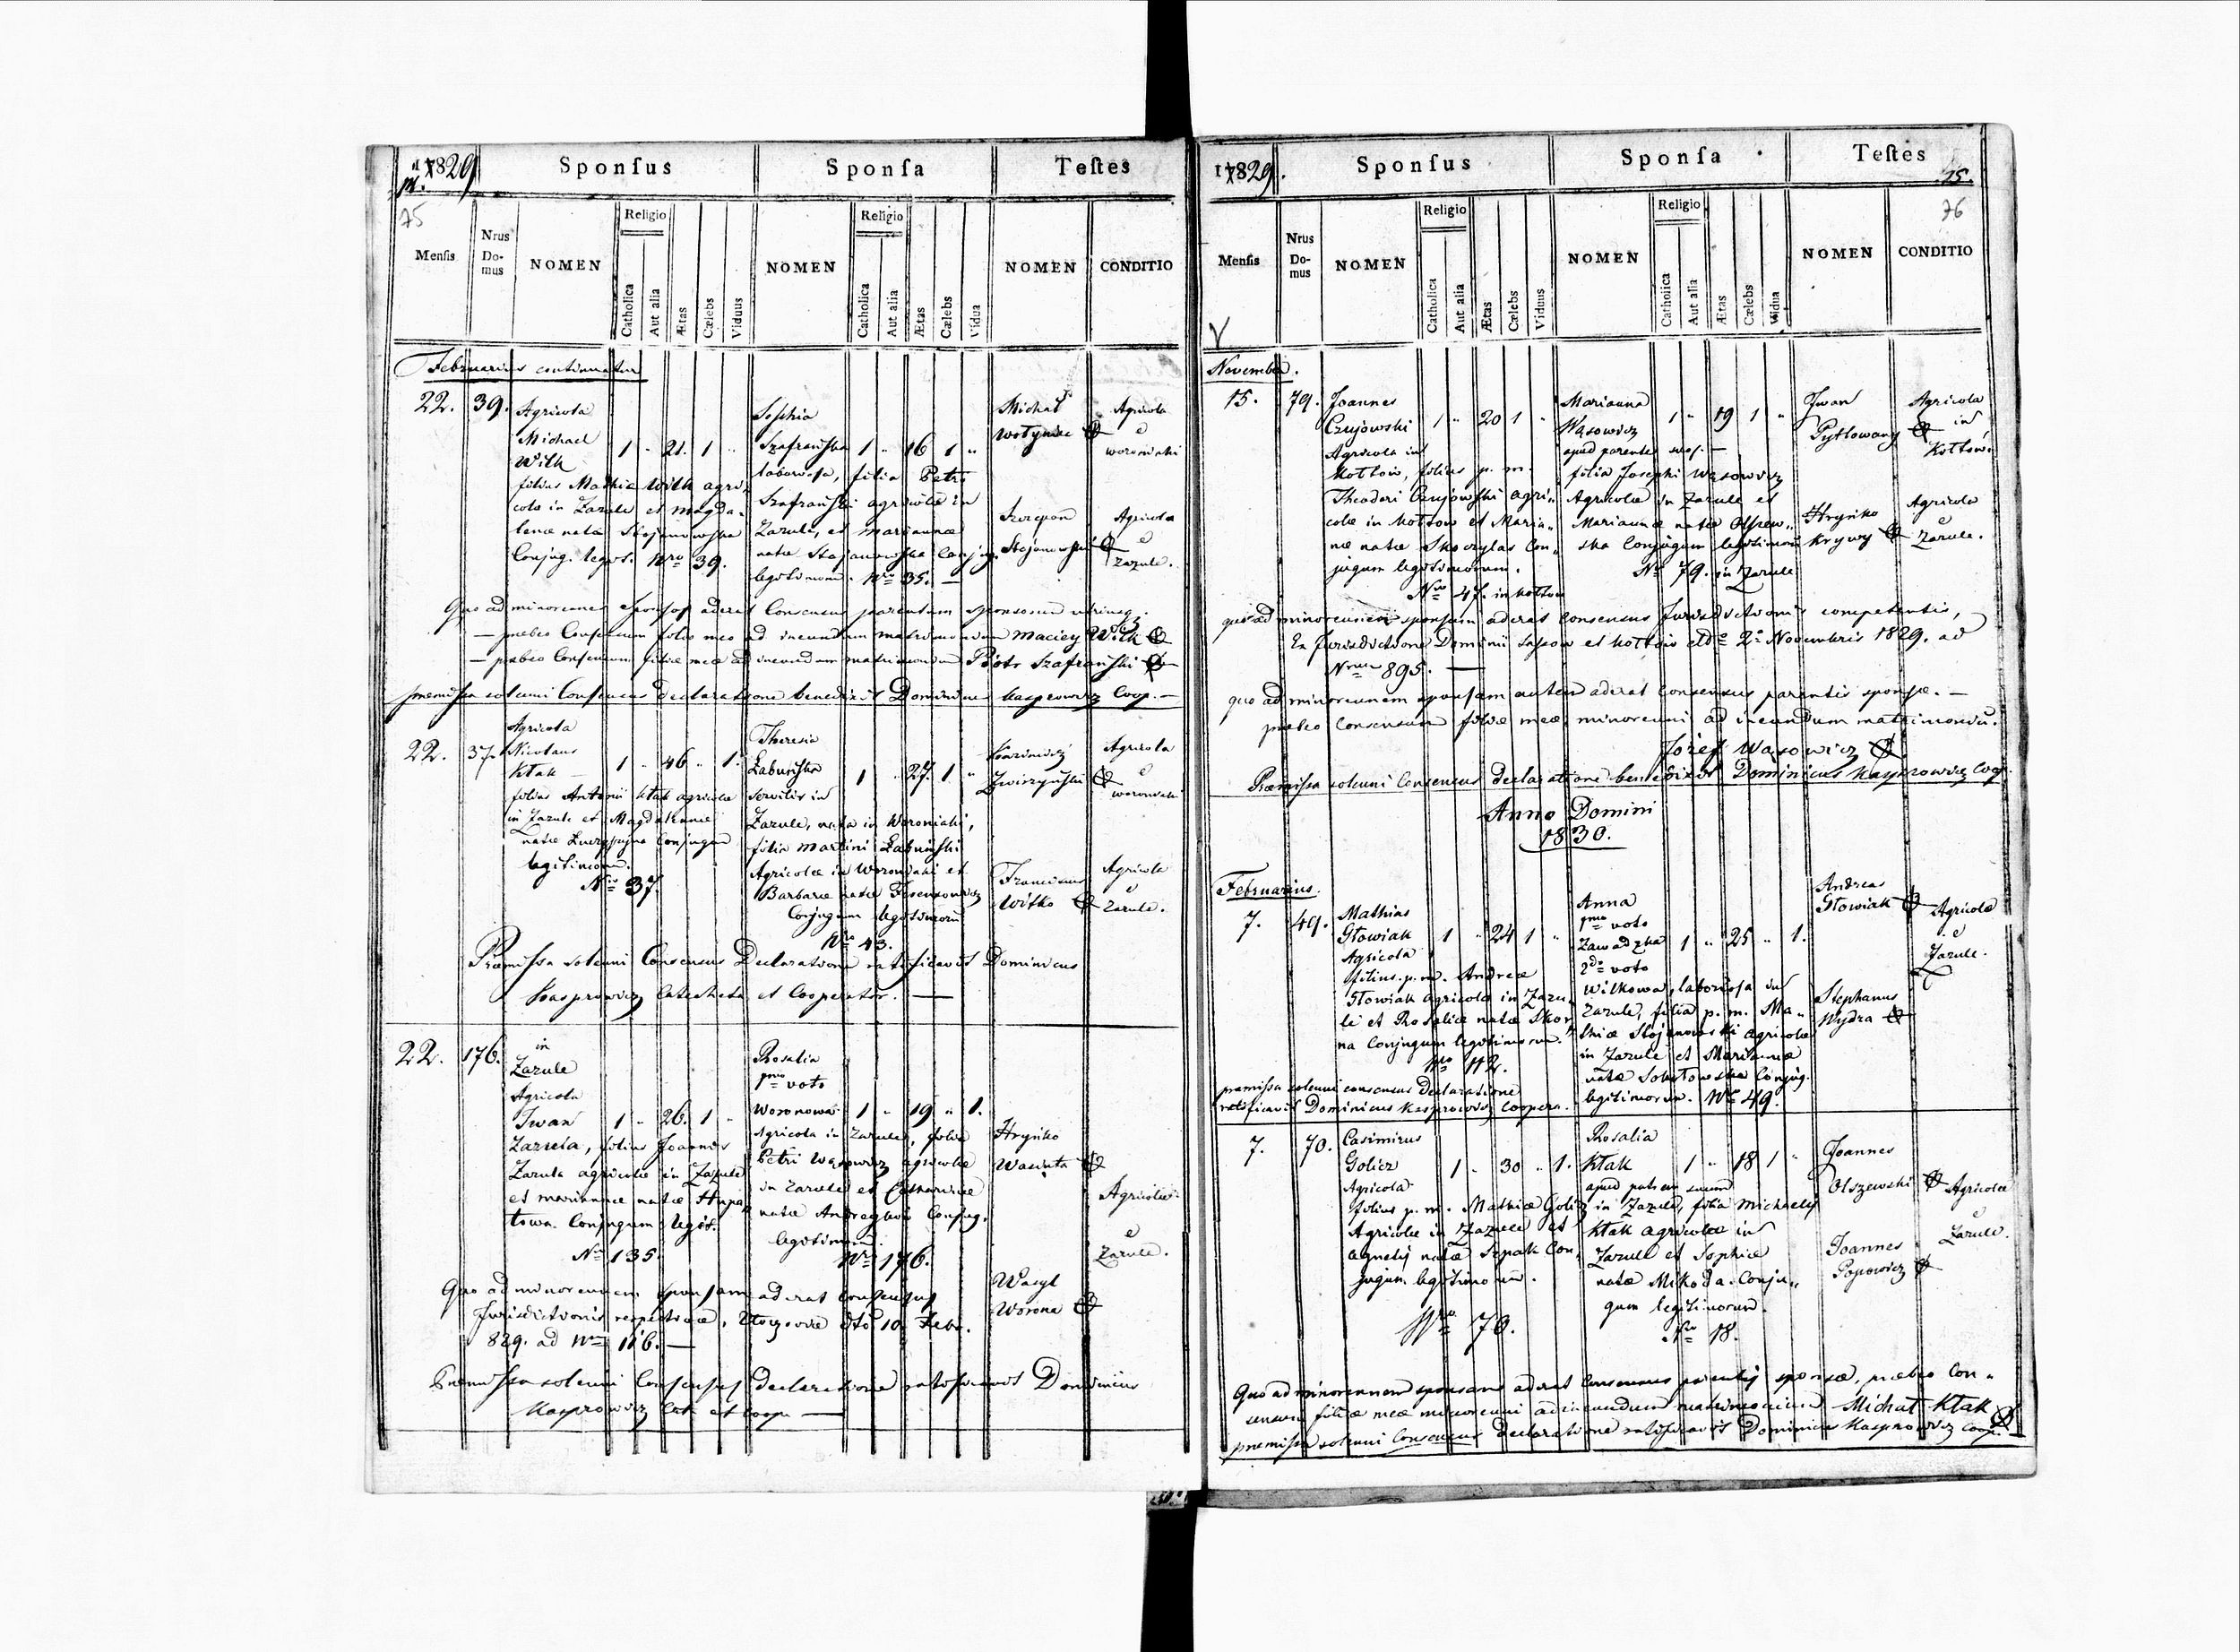 1829
Sponsus
Sponsa
Testes
75
Mensis
Nrus Do-mus
NOMEN
Religio
Catholica
Aut alia
Ætas
Cælebs
Viduus
NOMEN
Religio
Catholica
Aut alia
Ætas
Cælebs
Vidua
NOMEN
CONDITIO
Februarius continuatur
22. 39. Agricola
Michael
Wilk
1 " 21. 1 "
filius Mathiæ Wilk agri-
colæ in Zazule et Magda-
lenæ natæ Stojanowska
Conjug. legit. Nro 39.
Sophia
Szafrańska 1 " 16 1 "
laboriosa, filia Petri
Szafrański agricolæ in
Zazule, et Mariannæ
natæ Stojanowska Conjug.
legitimorum. Nro 35. —
Michał
Wołyniec
Agricola
e
woroniaki
Szczepan
Stojanowski
Agricola
e
Zazule.
Quo ad minorennes sponsos aderat Consensus parentum sponsorum utriusq.
— præbeo Consensum filio meo ad ineundum matrimonium Maciey Wilk
— præbeo Consensum filiæ meæ ad ineundum matrimonium Piotr Szafrański
præmissa solemni Consensus declaratione benedixit Dominicus Kasprowicz Coop. —
22. 37. Agricola
Nicolaus
Ktak
1 " 46 " 1.
filius Antonii Ktak agricolæ
in Zazule et Magdalenæ
natæ Conjugum
legitimorum.
Nro 37.
Theresia
Łabuńska 1 " 27. 1 "
servilis in
Zazule, nata in Woroniaki,
filia Martini Łabuński
Agricolæ in Woroniaki et
Barbaræ natæ
Conjugum legitimorum
Nro 43.
Kazimierz
Zwierzyński
Agricola
e
woroniaki
Franciscus
Witko
Agricola
e
Zazule.
Præmissa solemni Consensus Declaratione ratificavit Dominicus
Kasprowicz Catecheta et Cooperator. —
22. 176. in
Zazule
Agricola
Iwan 1 " 26. 1 "
Zazula, filius Joannis
Zazula agricolæ in Zazule
et Mariannæ natæ
Conjugum legit.
Nro 135.
Rosalia
1mo voto
Woronowa 1 " 19 " 1.
Agricola in Zazule, filia
Petri Wąsowicz agricolæ
in Zazule et Catharinæ
natæ Conjug.
legitimorum.
Nro 176.
Hryńko
Wasiuta
Agricolæ
e
Zazule.
Wasyl
Worona
Quo ad minorennem sponsam aderat Consensus
Jurisdictionis respectivæ, Złoczoviæ dto 10 Febr.
829. ad Nrum 116. —
Præmissa solemni Consensus declaratione ratificavit Dominicus
Kasprowicz Cat. et Coop. —
1829.
Sponsus
Sponsa
Testes
75.
76
Mensis
Nrus Do-mus
NOMEN
Religio
Catholica
Aut alia
Ætas
Cælebs
Viduus
NOMEN
Religio
Catholica
Aut alia
Ætas
Cælebs
Vidua
NOMEN
CONDITIO
November.
15. 79. Joannes
Czujowski 1 " 20 1 "
Agricola in
Kołtów, filius p. m.
Theodori Czujowski agri-
colæ in Kołtów et Maria-
næ natæ Skoczylas Con-
jugum legitimorum.
Nro 47. in Kołtow
Marianna
Wąsowicz 1 " 19 1 "
apud parentes suos. —
filia Josephi Wąsowicz
Agricolæ in Zazule et
Mariannæ natæ Olszew-
ska Conjugum legitimorum
Nro 79. in Zazule
Iwan
Pytlowany
Agricola
in
Kołtów.
Hryńko
Krywy
Agricola
e
Zazule.
quo ad minorennem sponsum aderat consensus Jurisdictionis competentis,
Ex Jurisdictione Dominii Sassow et Kołtów ddto 2 Novembris 1829. ad
Nrum 895. —
quo ad minorennem sponsam autem aderat consensus parentis sponsæ. —
præbeo Consensum filiæ meæ minorenni ad ineundum matrimonium.
Józef Wąsowicz
Præmissa solemni Consensus declaratione benedixit Dominicus Kasprowicz Coop.
Anno Domini
1830.
Februarius.
7. 49. Mathias
Głowiak 1 " 24 1 "
Agricola
filius p. m. Andreæ
Głowiak agricolæ in Zazu-
le et Rosaliæ natæ Skor
na Conjugum legitimorum.
Nro 112.
præmissa solemni consensus Declaratione
ratificavit Dominicus Kasprowicz Coopera.
Anna
1mo voto
Zawadzka 1 " 25 " 1.
2do voto
Wilkowa, laboriosa in
Zazule, filia p. m. Ma-
thiæ Stojanowski agricolæ
in Zazule et Mariannæ
natæ Sobotowska Conjug.
legitimorum. Nro 49.
Andreas
Głowiak
Agricolæ
e
Zazule.
Stephanus
Wydra
7. 70. Casimirus
Golicz 1 " 30 " 1.
Agricola
filius p. m. Mathiæ Golicz
Agricolæ in Zazule et
Agnetis natæ Szpak Con-
jugum legitimorum.
Nro 70.
Rosalia
Ktak 1 " 18 1 "
apud patrem suum
in Zazule, filia Michaelis
Ktak agricolæ in
Zazule et Sophiæ
natæ Mikoda Conju-
gum legitimorum.
Nro 18.
Joannes
Olszewski
Agricolæ
e
Zazule.
Joannes
Popowicz
Quo ad minorennem sponsam aderat Consensus parentis sponsæ, præbeo Con-
sensum filiæ meæ minorenni ad ineundum matrimonium Michał Ktak
præmissa solemni Consensus Declaratione ratificavit Dominicus Kasprowicz Coop.